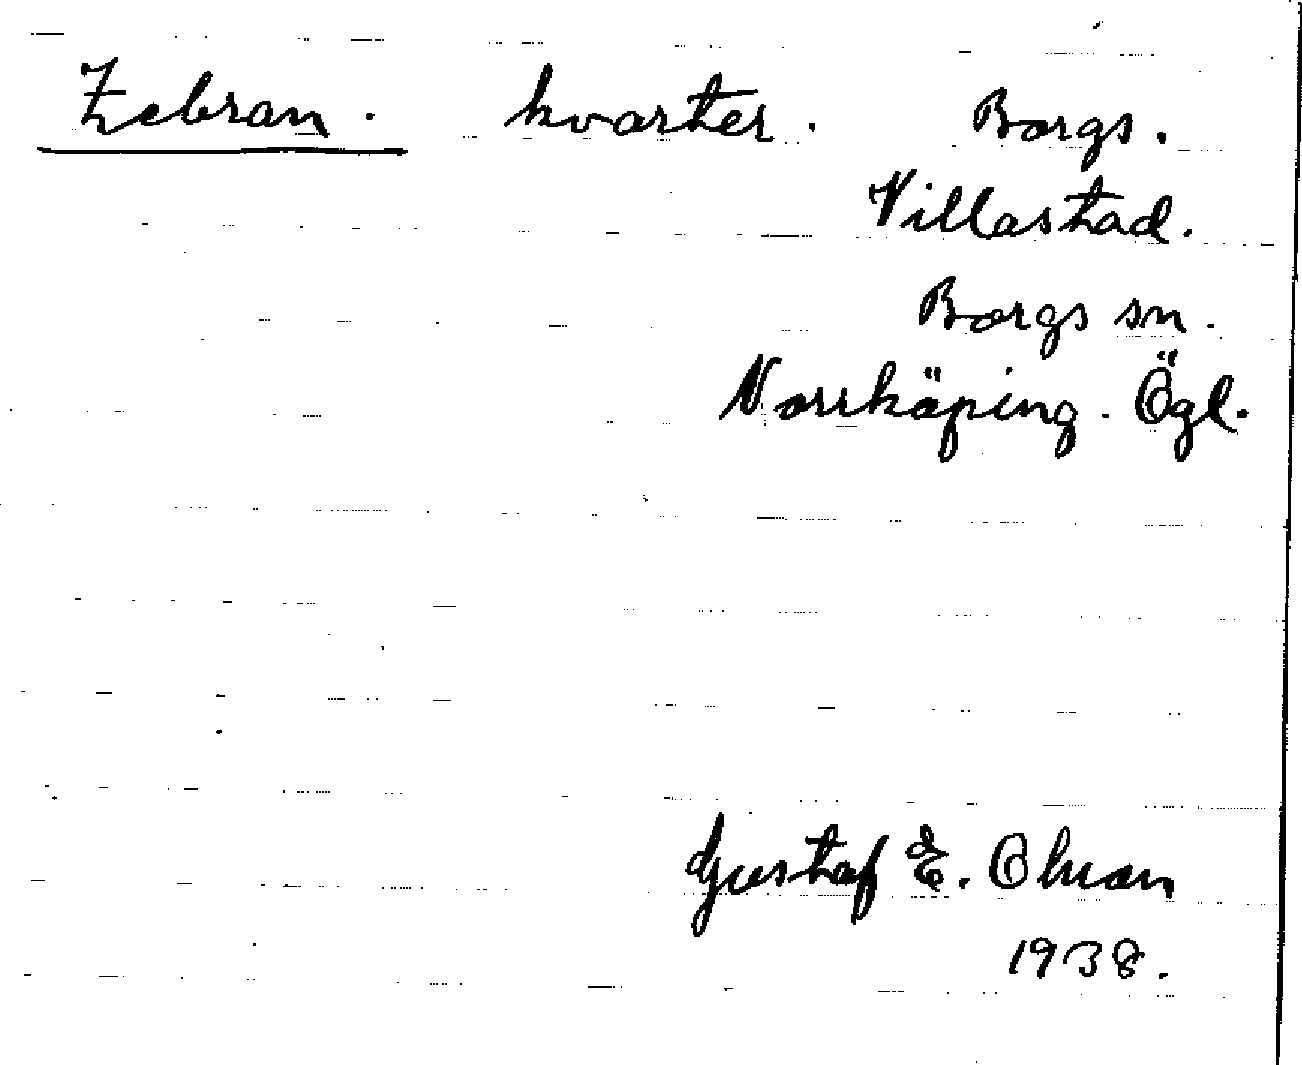 Zebran. kvarter. Borgs.
Villastad.
Borgs sn.
Norrköping. Ögl.
Gustaf E. Olsson
1938.